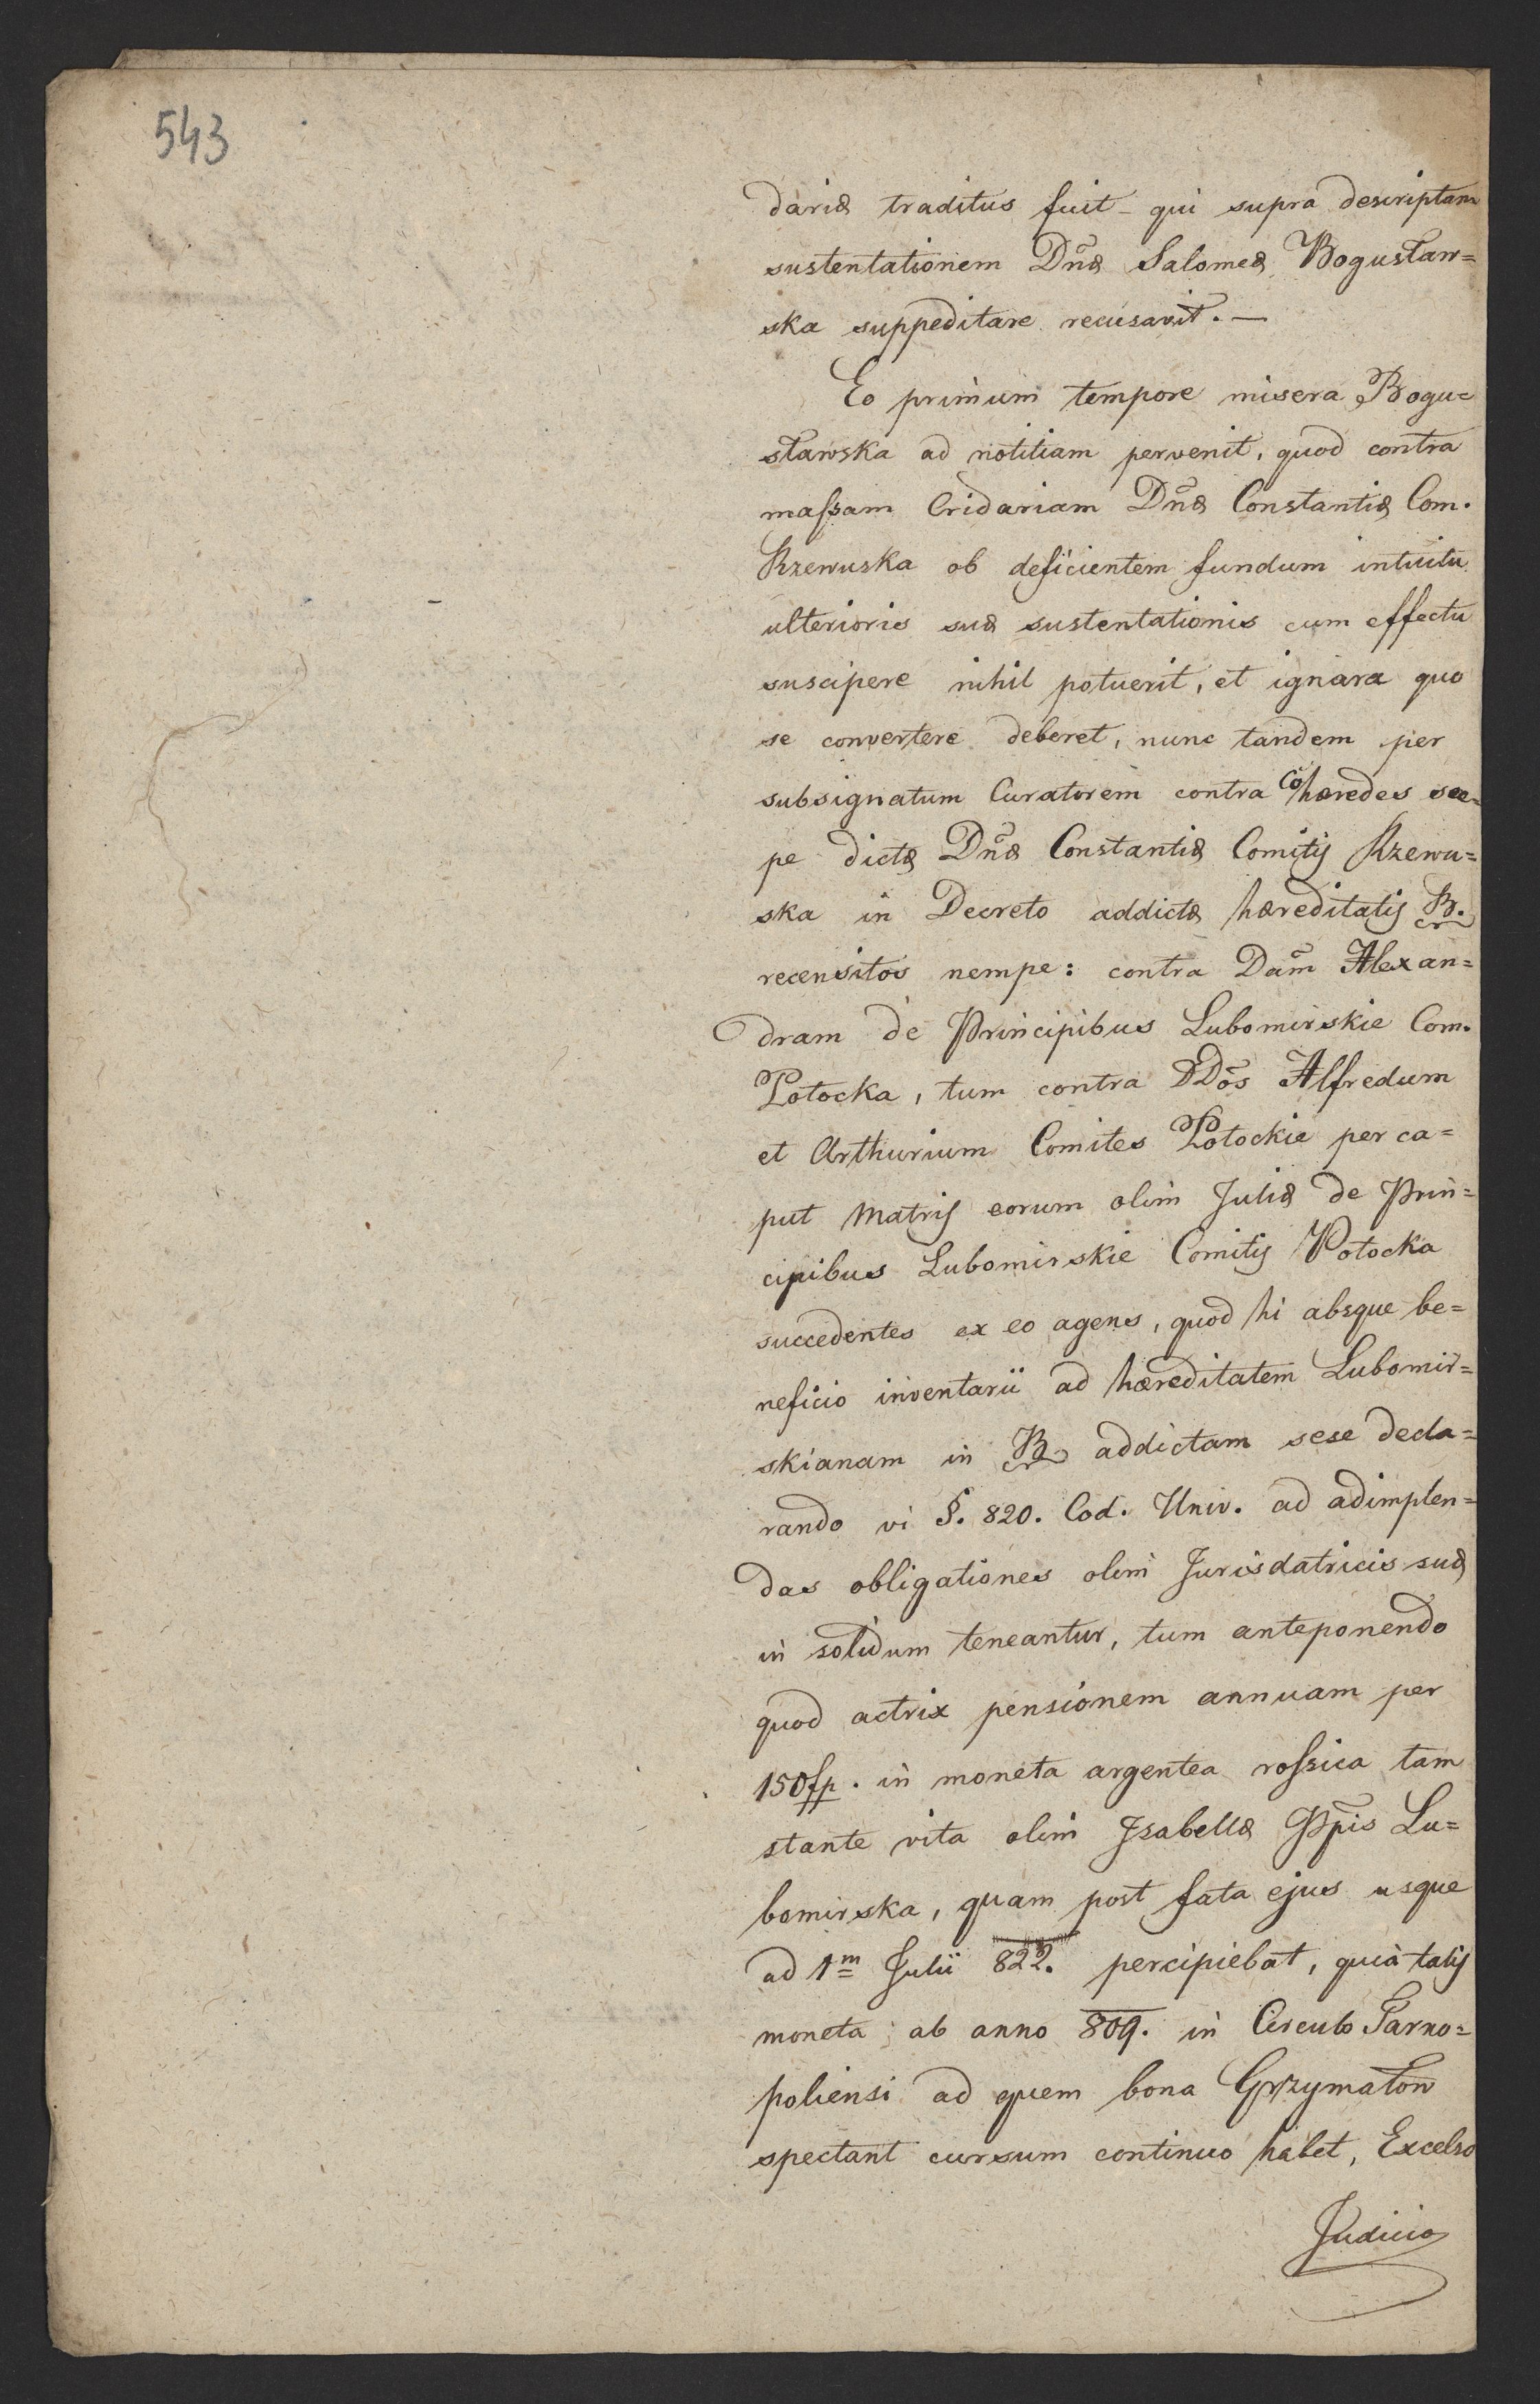 543
dariæ traditus fuit – qui supra descriptam
sustentationem Dnæ Salomeæ Bogusław=
ska suppeditare recusavit. —
Eo primum tempore misera Bogu=
sławska ad notitiam pervenit, quod contra
maſsam Cridariam Dnæ Constantiæ Com.
Rzewuska ob deficientem fundum intuitu
ulterioris suæ sustentationis cum effectu
suscipere nihil potuerit, et ignara quo
se convertere deberet, nunc tandem per
subsignatum Curatorem contra Cohæredes sæ=
pe dictæ Dnæ Constantiæ Comitis Rzewu=
ska in Decreto addictæ hæreditatis B.
recensitos nempe: contra Dam Alexan=
dram de Principibus Lubomirskie Com.
Potocka, tum contra DDos Alfredum
et Arthurium Comites Potockie per ca=
put Matris eorum olim Juliæ de Prin=
cipibus Lubomirskie Comitis Potocka
succedentes ex eo agens, quod hi absque be=
neficio inventarii ad hæreditatem Lubomir=
skianam in B addictam sese decla=
rando vi §. 820. Cod. Univ. ad adimplen=
das obligationes olim Jurisdatricis suæ
in solidum teneantur, tum anteponendo
quod actrix pensionem annuam per
150 fp. in moneta argentea roſsica tam
stante vita olim Isabellæ Ppis Lu=
bomirska, quam post fata ejus usque
ad 1m Julii 822. percipiebat, quia talis
moneta ab anno 809. in Circulo Tarno=
poliensi ad quem bona Grzymałow
spectant cursum continuo habet, Excelso
Judicio